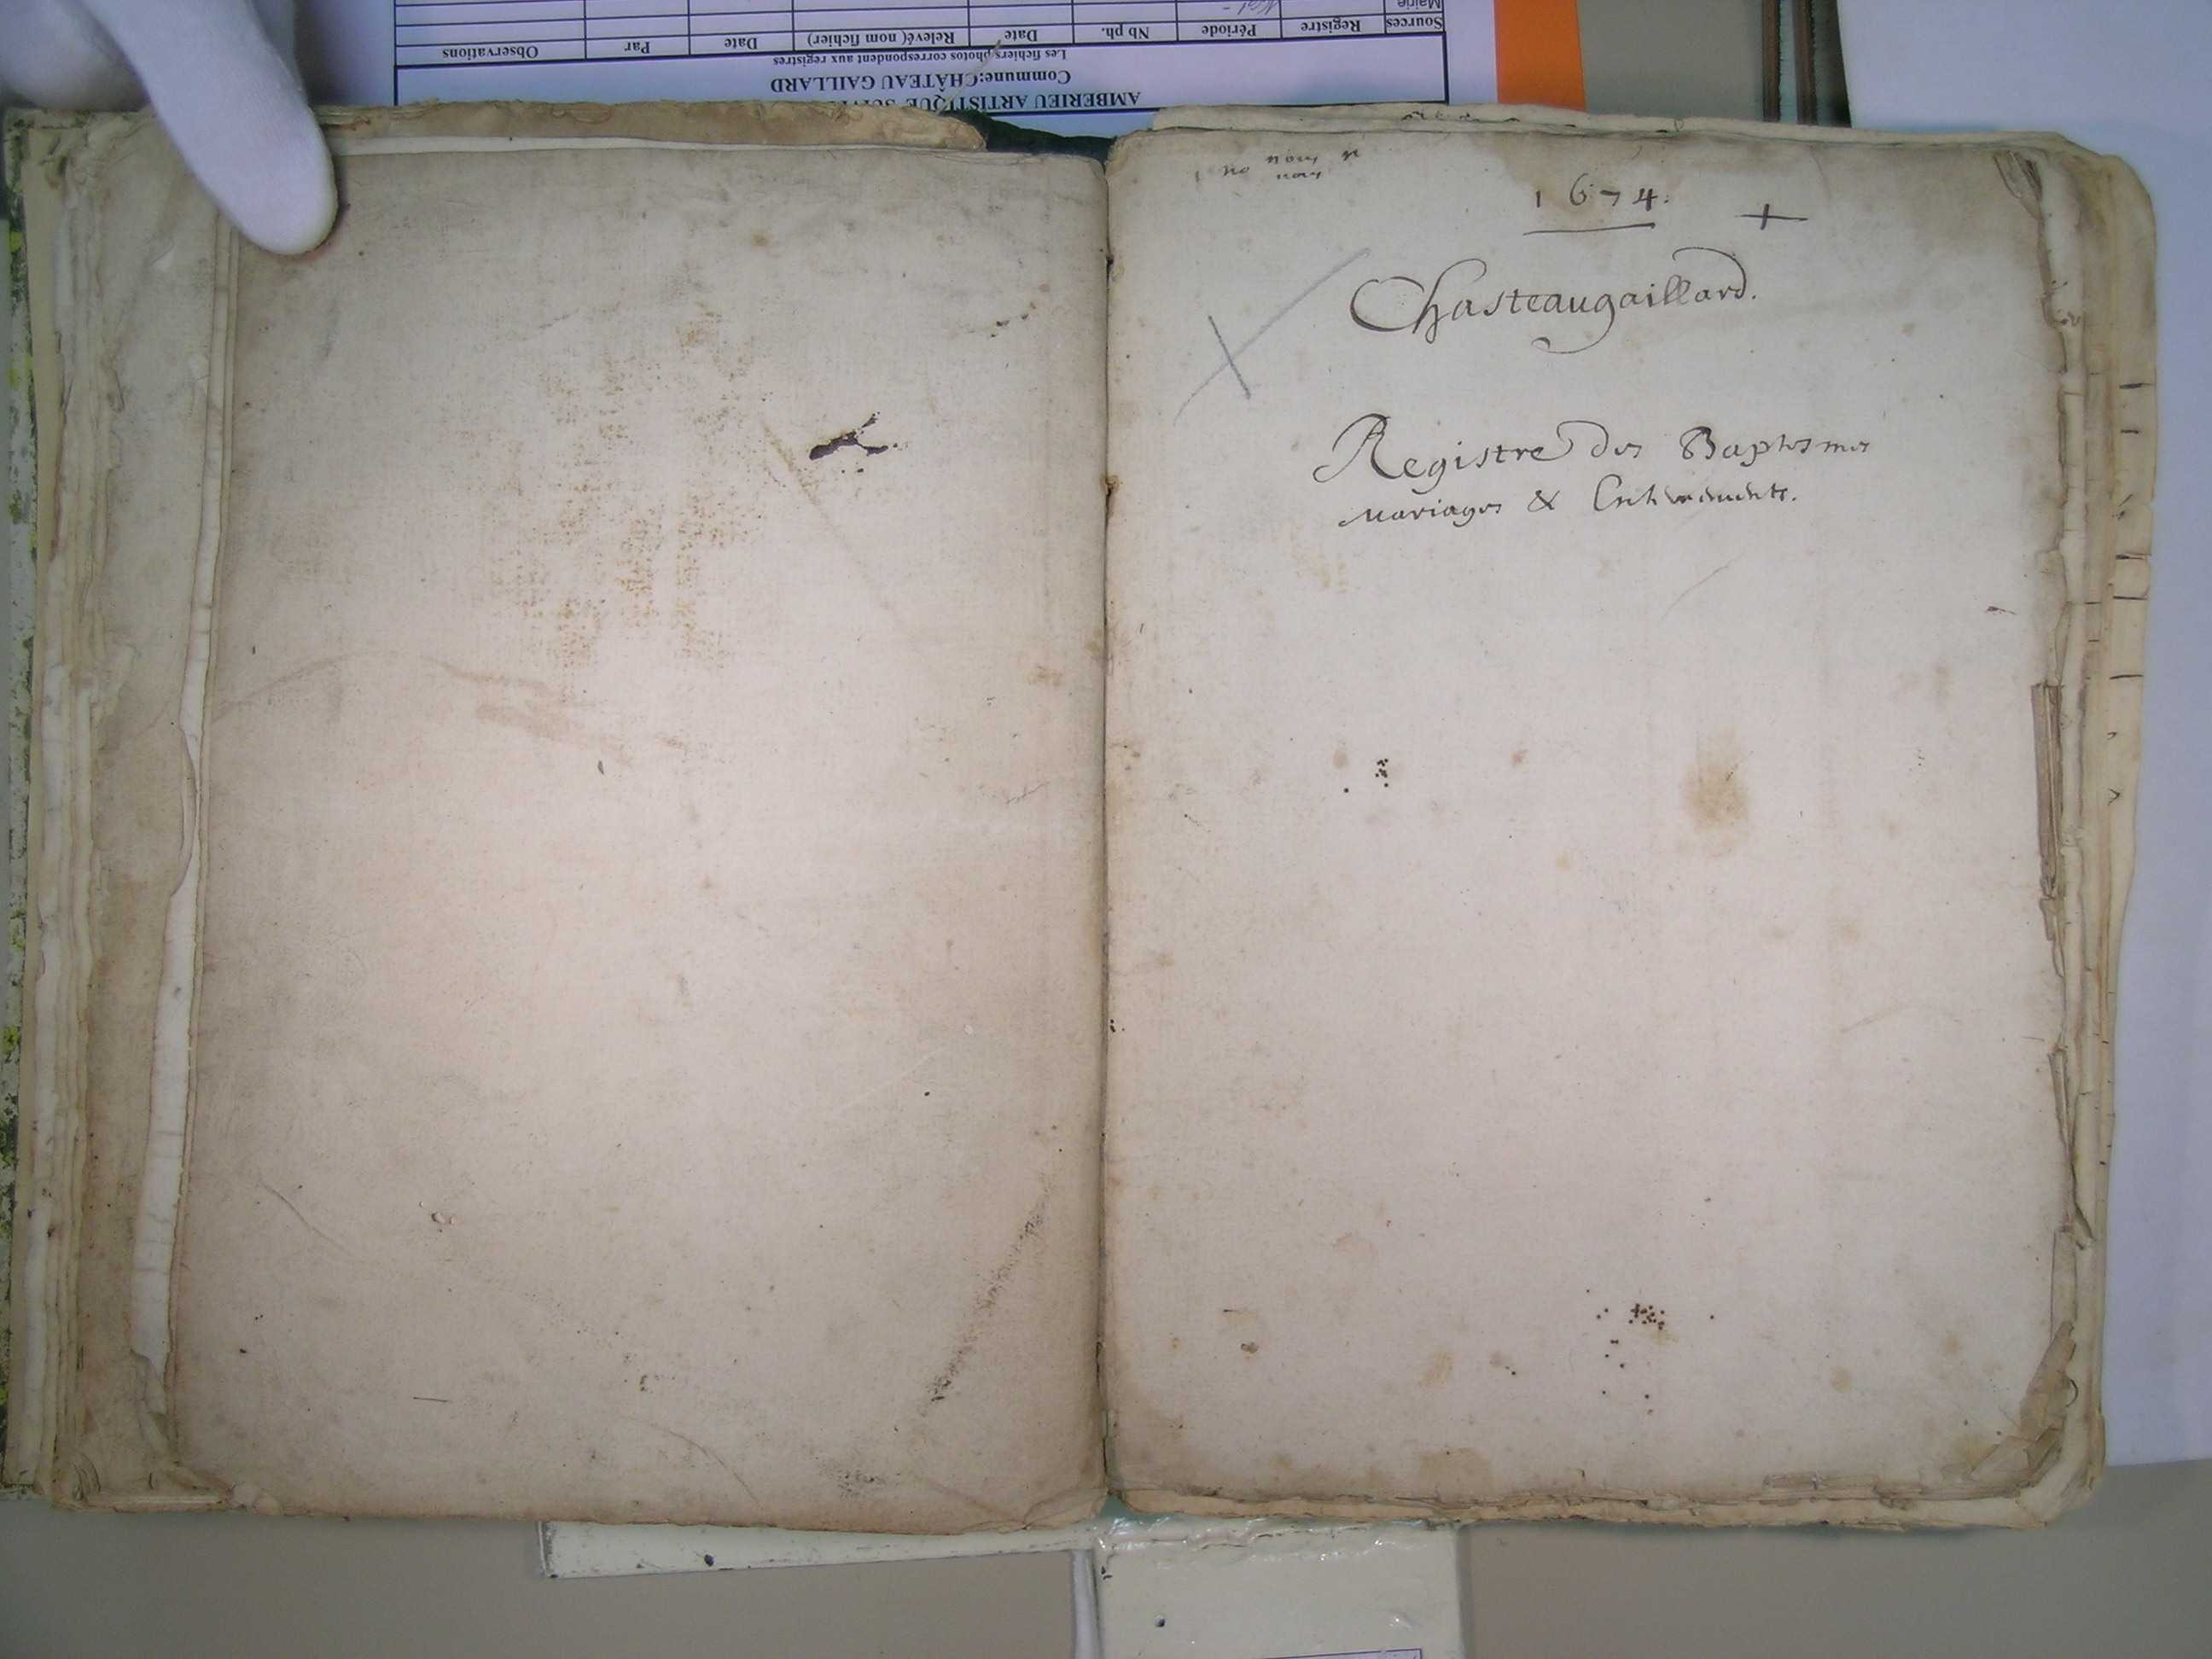 AMBERIEU ARTISTIQUE
Commune:CHÂTEAU GAILLARD
Les fichiers photos correspondent aux registres
Sources Registre Période Nb ph. Date Relevé( nom fichier) Date Par Observations
Mairie
no nous
nous
1674.
Chasteaugaillard.
Registre des Baptesmes
mariages & Enterements.